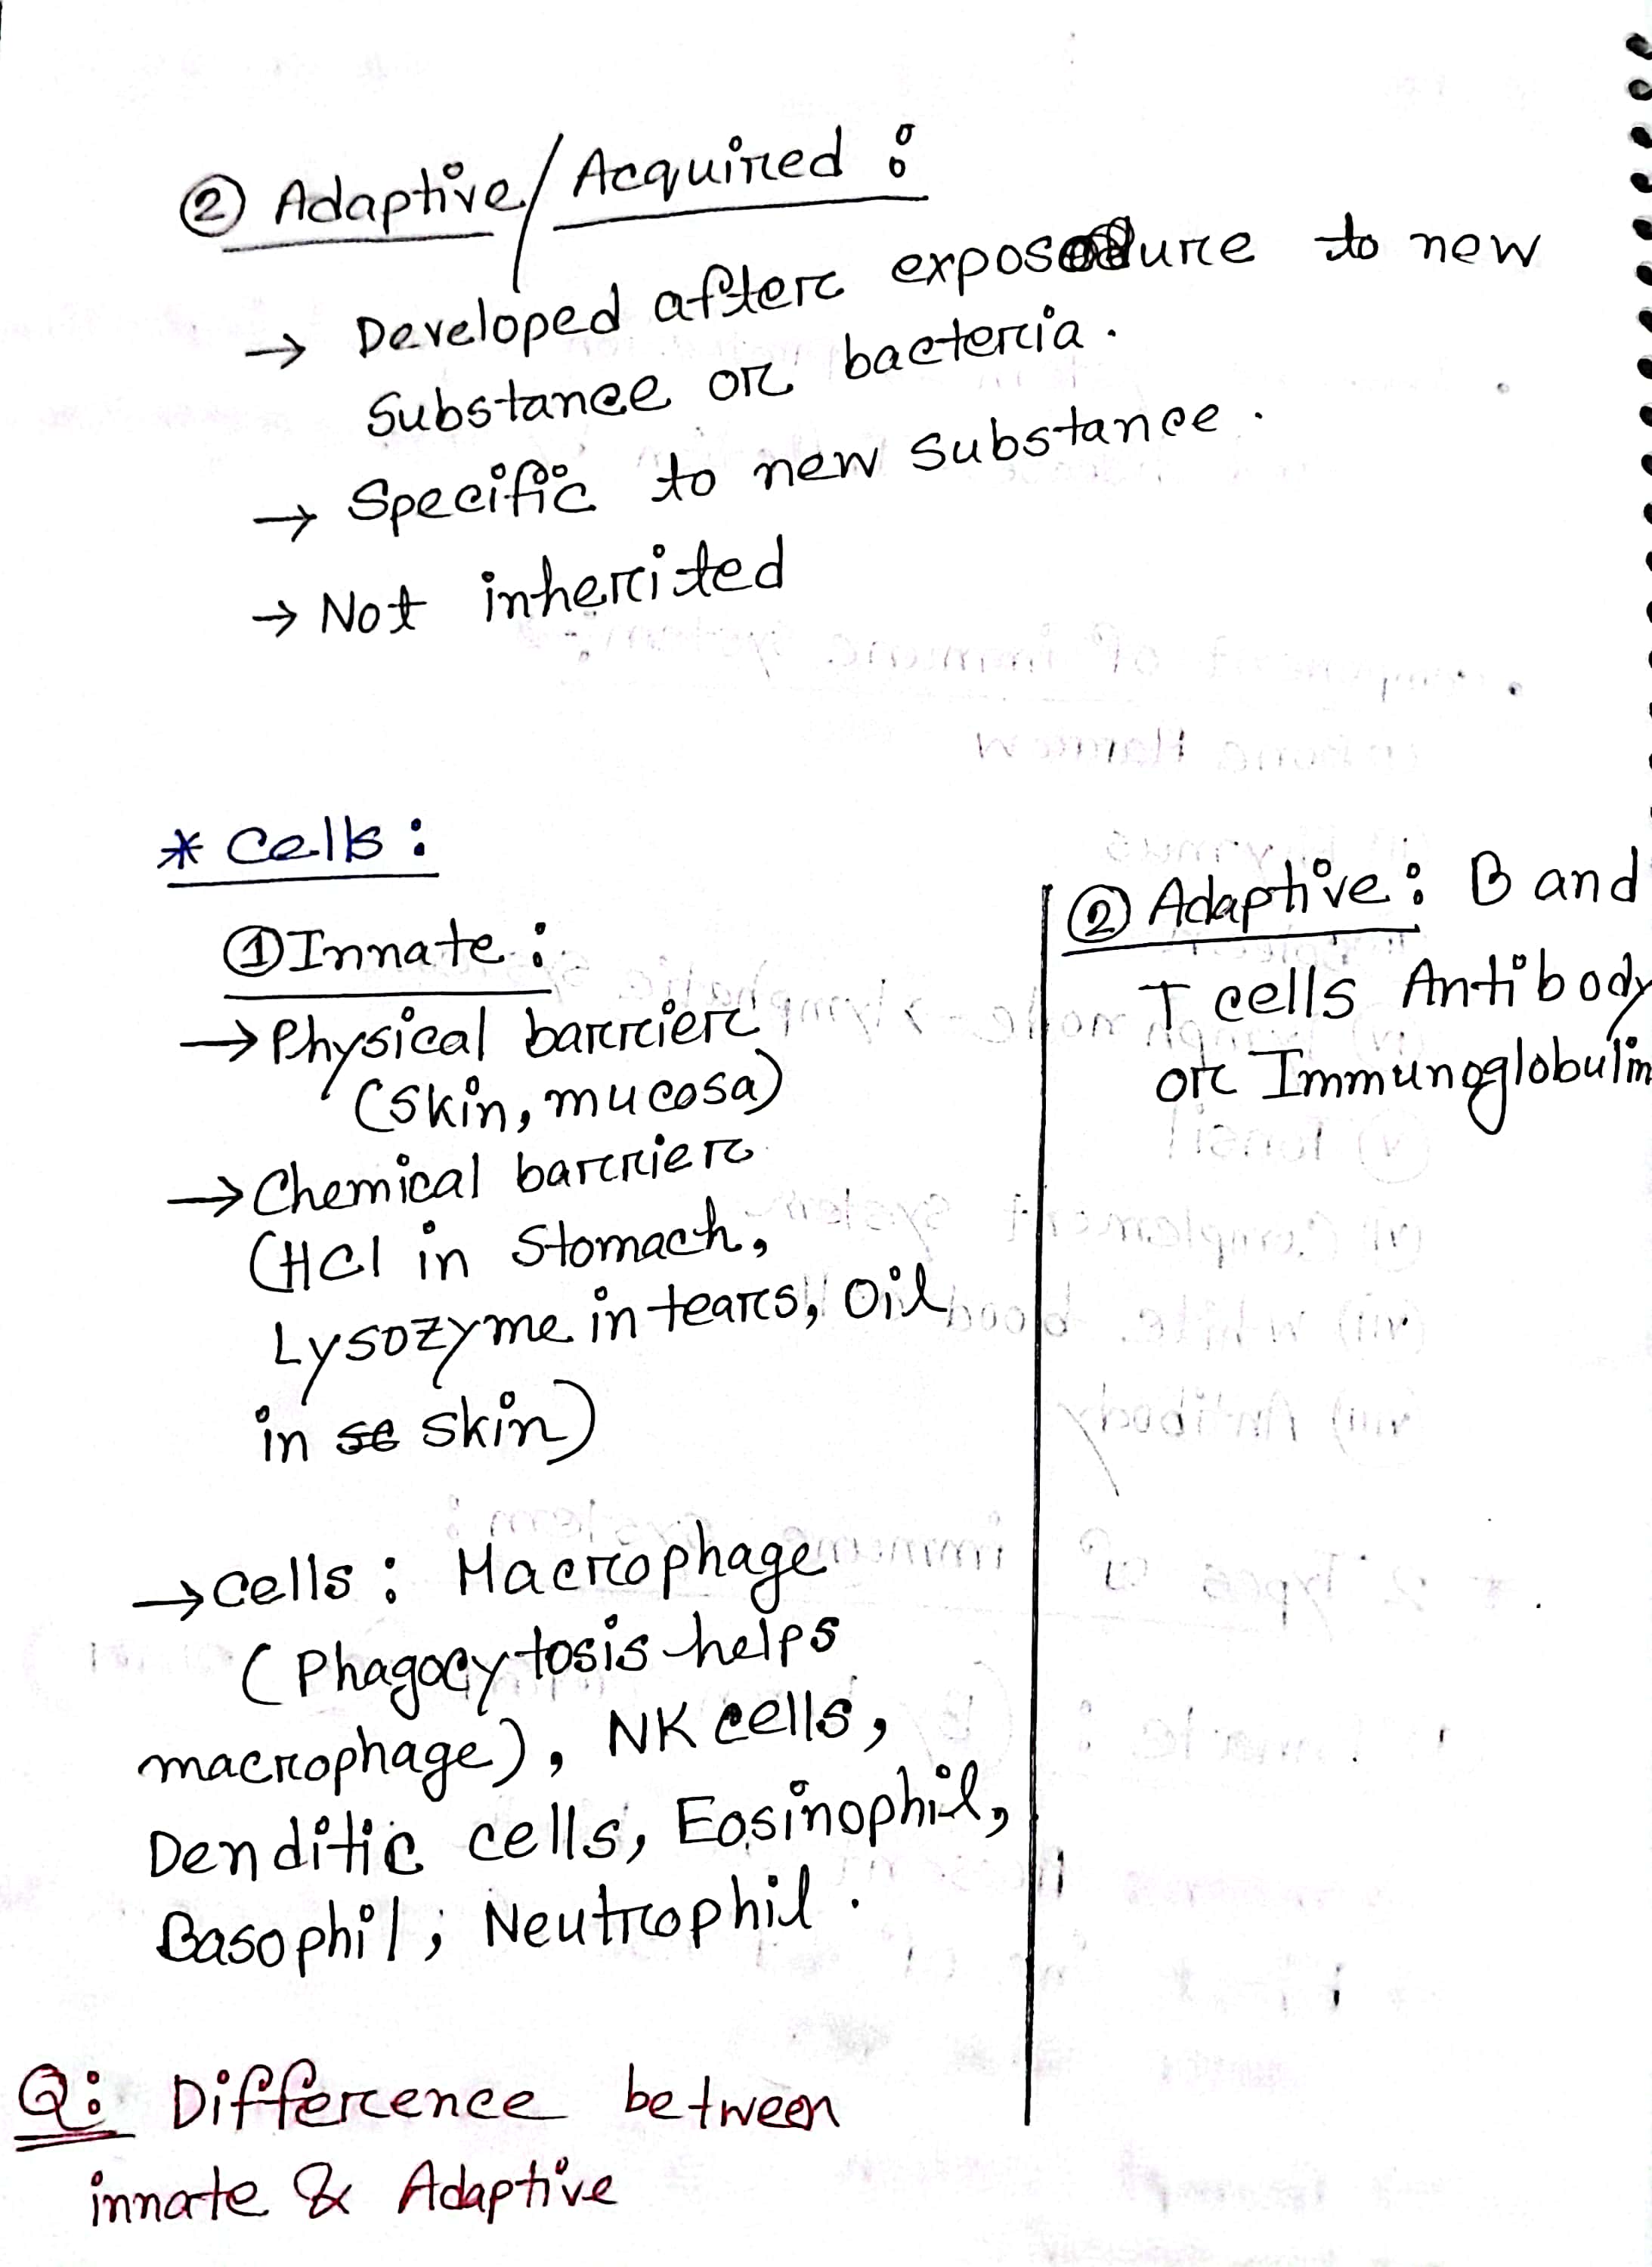 ② Adaptive/Acquired :
→ Developed after exposure to new
substance or bacteria.
→ Specific to new substance.
→ Not inherited
* Cells :
① Innate :
→ Physical barrier
(Skin, mucosa)
→ Chemical barrier
(HCl in Stomach,
Lysozyme in tears, Oil
in se skin)
→ Cells : Macrophage
(Phagocytosis helps
macrophage), NK cells,
Denditic cells, Eosinophil,
Basophil, Neutrophil.
② Adaptive : B and
T cells Antibody
or Immunoglobulin
Q: Difference between
innate & Adaptive